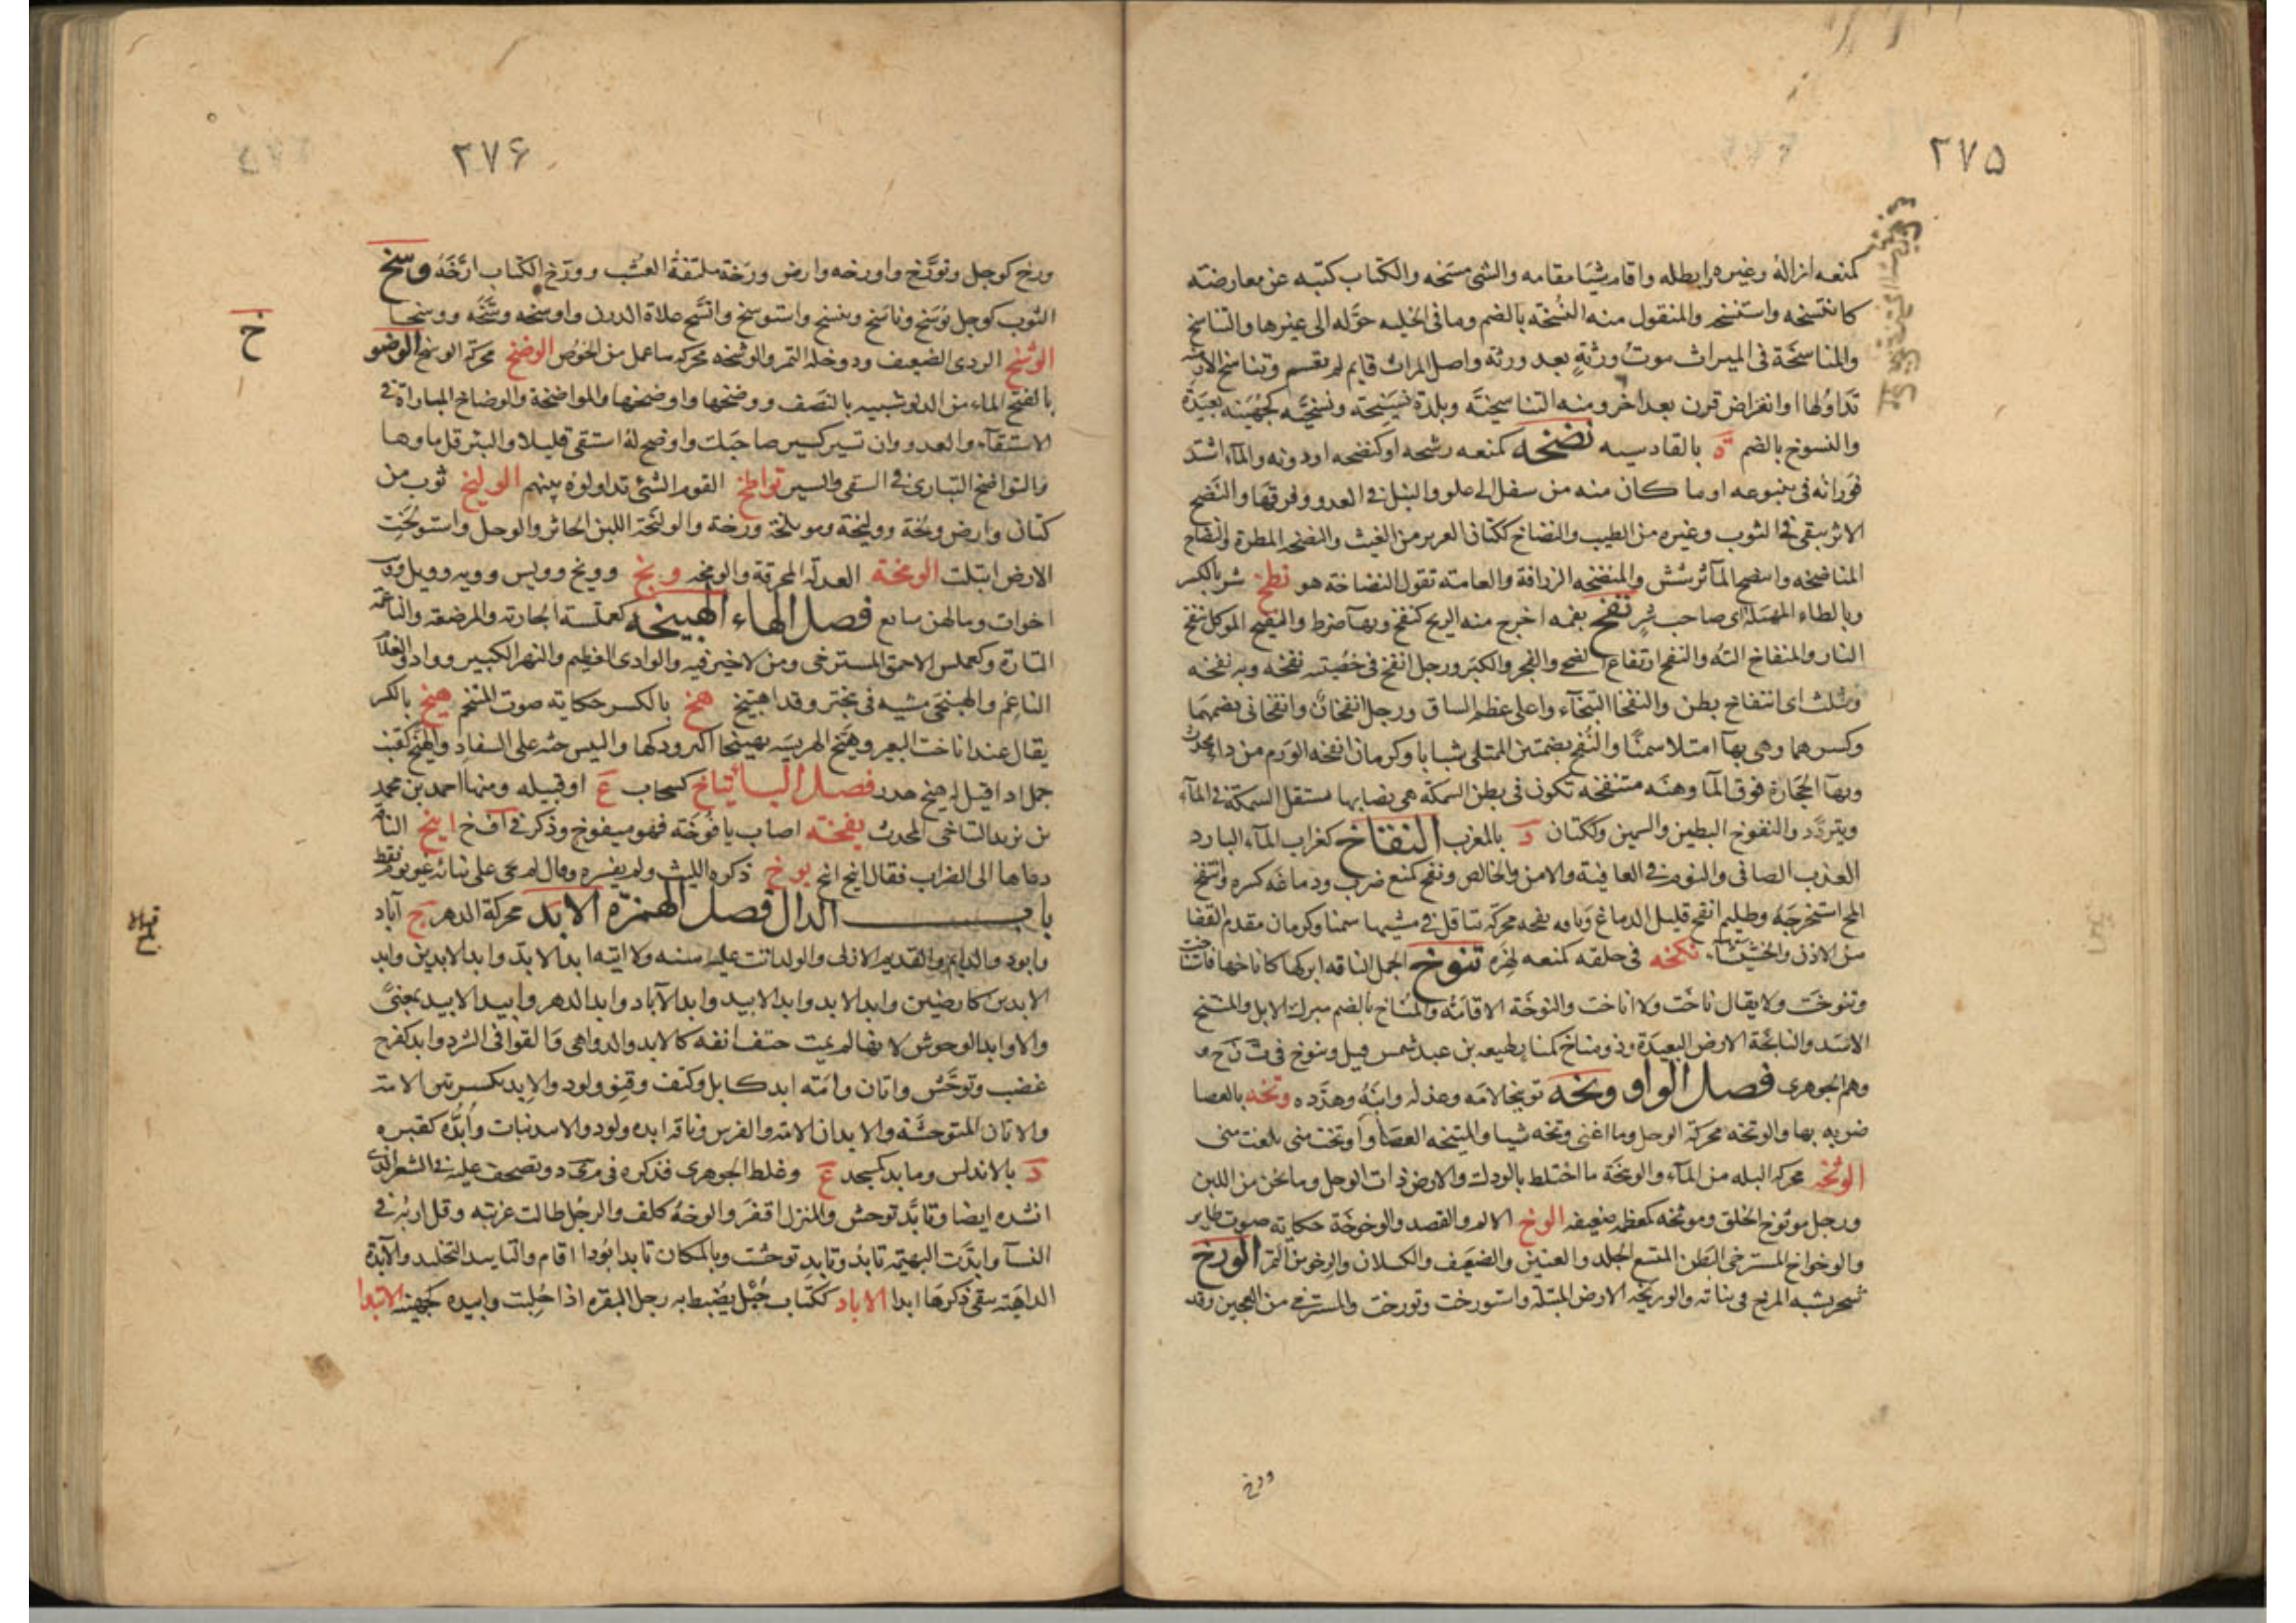 ۲۷۵
كمنعه ازاله وغيره وابطله واقام شيئا مقامه والشى مسخه والكتاب كتبه عن معارضته
كانتسخه واستنسخه والمنقول منه النُسخه بالضم وما فى الخليه حوَّله الى غيرها والتناسخ
والمناسخَة فى الميراث موتُ ورثةٍ بعد ورثه واصل الميراث قايم لم يقسم وتناسخ الازمنه
تَدَاوُلها او انقراض قرن بعد اخر ومنه التناسخيَّه وبلدة نَسِيْخة ونسْخيَّه كجُهَينه بعيدَة
والنسوخ بالضم ة بالقادسيه نضخه كمنعه رشحه او كنضحه او دونه والمآء اشتد
فوَرانه فى ينبوعه او ما كان منه من سفل الى علو والنبل فى العدو وفرقها والنَّضخ
الاثر يبقى فى الثوب وغيره من الطيب والنضاخ ككتان الغزير من الغيث والنضخه المطرة وانضاخ
المناضخه وانتضخ المآ ترشش والمنضخه الزرافة والعامته تقول النضاخة هو نطخ شر بالكسر
وبالطاء المهملة اى صاحب شر نفخ بفمه اخرج منه الريح كنفخ وبهآ ضرط والنفيخ الموكل بنفخ
النار والمنفاخ آلته والنفخ ارتفاع الضحى والفخر والكبر ورجل انفخ فى خصيته نفخه وبه نفخه
ويثلث اى انتفاخ بطن والنفخا النبخآء واعلى عظم الساق ورجل انفخان وانفخانى بضمهما
وكسرهما وهى بهآ امتلا سمنًا والنُفخ بضمتين الممتلى شبابا وكرمان انفخه الورم من دا يحدث
وبهآ الحجَارة فوق المآ وهنَه منتفخه تكون فى بطن السمكة هى نصابها تستقل السمكة فى المآء
ويتردّد والنفوخ البطين والسمين وككتان د بالمغرب النقاخ كغراب المآء البارد
العذب الصافى والنوم فى العافيته والامن والخالص ونقخ كمنع ضرب ودماغه كسره وانتقخ
المخ استخرجَهُ وظليم انقخ قليل الدماغ وناقه نقخه محركة تتاقل فى مشيها سمنا وكرمان مقدم القفا
من الاذن والخُشَشَآء نكخه فى حلقه كمنعه لهَزه تنوخ الجمل الناقه ابركها كاناخها فاستناخت
وتنوخت ولا يقال ناخت ولا اناخت والنوخَة الاقامة والمُناخ بالضم مبرك الابل والمنتخ
الاسَد والنايخَة الارض البعيدَة وذو مناخ كمنا بطيعه بن عبد شمس قيل وتنوخ فى ت ن خ و
وهم الجوهرى فصل الواو وبخه توبيخا لامَه وعذله وانّبَه وهدَّده وتخه بالعصا
ضربه بها والوتخه محركة الوحل وما اغنى وتخه شيا والميتخه العصَا واوتخت منى بلغت منى
الوثخه محركه البله من المآء والوثيخَة ما اختلط بالودك والارض ذات الوحل وما ثخن من اللبن
ورجل موثوخ الخلق وموثخه كمعظمه ضعيفه الوخ الالم والقصد والوخوخَة حكاية صوت طاير
والوخواخ المسترخى البَطن المتسع الجلد والعنين والضعَيف والكسلان والرخو من التمر الورخ
شجر يشبه المرخ فى نباته والوريخه الارض المبتلّه واستورخت وتورخت والمسترخى من العجين وقد
ورخ
۲۷۶
ورخ كوجل وتورَّخ واورخه وارض ورَخة ملتفةُ العُشب وورّخ الكتاب ارَّخهُ وسخ
الثوب كوجل توسَخ وتاسَخ ويتسخ واستوسخ واتسَّخ علاهُ الدرن واوسَخه وسَّخه ووسَخَها
الوشخ الردى الضعيف ودوخله التمر والوشخه محركه ما عمل من الخوص الوضخ محركه الوسخ الوضو
بالفتح الماء من الدلو شبيه بالنصَف ووضخها واوضخها والمواضخة والوضاخ المباراة فى
الاستقآء والعدو وان تسير كسير صاحبَك واوضخ لهُ استقى قليلا والبئر قل ماوها
والتواضخ التبارى فى السقى والسير تواطخ القوم الشئ تداولوُه بينهم الوليخ ثوب من
كتان وارض ولخة ووليخة وموتلخة ورخة والولخَة اللبن الخاثر والوحل واستولخت
الارض ابتلت الومخة العدله المحرقة والومخه ويخ وويح وويس وويه وويل وويب
اخوات وما لهن سابع فصل الهاء الهبيخه كعملسة الجارية والمرضعه والناعمه
التارّة وكعملس الاحمق المسترخى ومن لا خير فيه والوادى العظيم والنهر الكبير وواد والغلام
الناعم والهبيَّخى مشيه فى تبختر وقد اهبيَّخ هخ بالكسر حكاية صوت المتنخم هيخ بالكسر
يقال عند اناخت البعير وهيَّخ الهريسَه تهييخا اكثر ودكها والتيس حثه على السفاد والهيَّخ كقنب
جمل اذا قيل له هيخ هدر فصل اليا يتاخ كسحاب ع او قبيله ومنها احمد بن محمد
بن يزيد التاخى المحدث يفخته اصاب يافوخَه فهو ميفوخ وذكر فى أ ف خ اينخ الناقه
دعاها الى الضراب فقال اينخ اينخ يوخ ذكره الليث ولم يفسره وقال لم يجى على بنائه غير يوم فقط
باب الدال فصل الهمزة الابَد محركة الدهر ج آباد
وابود والدايم والقديم الازلى والولد اتت عليه سنه ولا اتيه ابد الابد وابد الابدين وابد
الابدين كارضين وابد الابد وابد الابيد وابد الآباد وابد الدهر وابيد الابيد بمعنىً
والاوابد الوحوش لانها لم يمت حتف انفه كالابد والدواهى والقوافى الشرد وابد كفرح
غضب وتوحّش واتان وامَته ابد كابل وكتف وقنو ولود والابِد بكسرتين الامته
والاتان المتوحشَّة والابدان الامته والفرس وناقه ابده ولود والاسد نبات وأُبَّده كقبره
د بالاندلس ومابد كمسجد ع وغلط الجوهرى فذكره فى م ى د وتصحف عليه فى الشعر الذى
انشده ايضا وتابَّد توحش والمنزل اقفَر والوجهُ كلف والرجُل طالت غزبته وقل اربُه فى
النسآ وابَدَت البهيمَه تابدُ وتابِد توحشت وبالمكان تابد ابُودا اقام والتابيد التخليد والآبدة
الداهيَه يبقى ذكرهَا ابدا الاباد ككتاب حَبْل يضبط به رجل البقره اذا حُلِبت وابيده كجهينه الابدا
خ